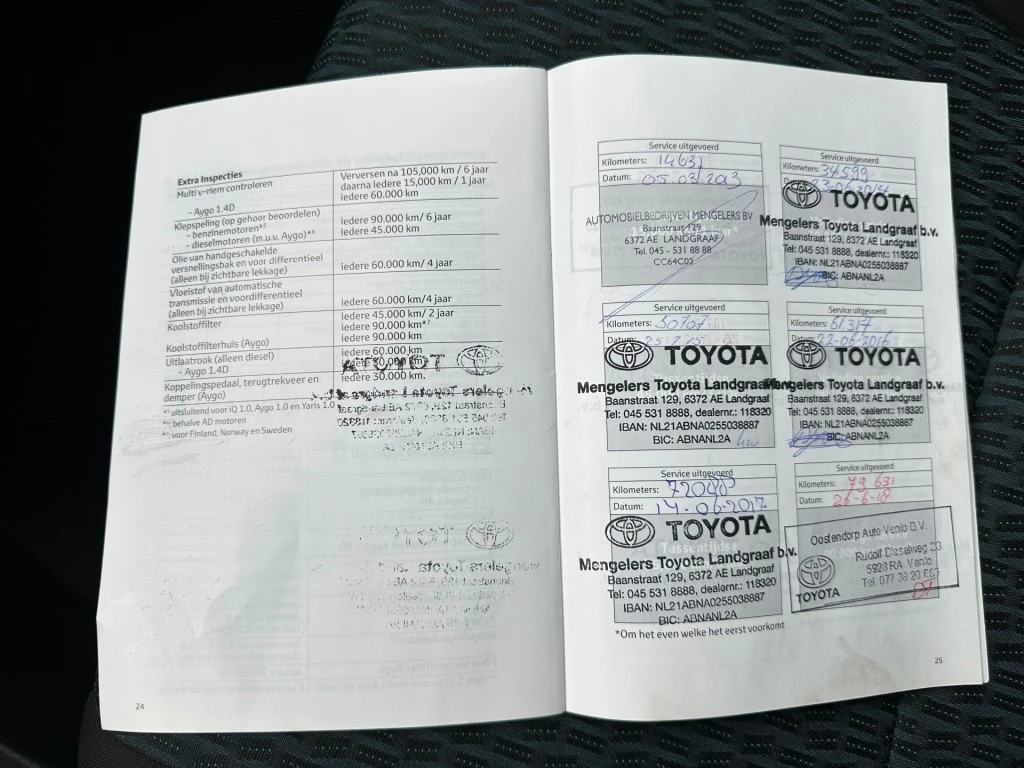 Extra Inspecties
Multi v-riem controleren
Verversen na 105,000 km / 6 jaar
daarna iedere 15,000 km / 1 jaar
- Aygo 1.4D
iedere 60.000 km
Klepspeling (op gehoor beoordelen)
- benzinemotoren*³
iedere 90.000 km/ 6 jaar
- dieselmotoren (m.u.v. Aygo)*⁶
iedere 45.000 km
Olie van handgeschakelde
versnellingsbak en voor differentieel
(alleen bij zichtbare lekkage)
iedere 60.000 km/ 4 jaar
Vloeistof van automatische
transmissie en voordifferentieel
(alleen bij zichtbare lekkage)
iedere 60.000 km/4 jaar
Koolstoffilter
iedere 45.000 km/ 2 jaar
iedere 90.000 km*⁷
Koolstoffilterhuis (Aygo)
iedere 90.000 km
Uitlaatrook (alleen diesel)
iedere 60.000 km
- Aygo 1.4D
iedere 30.000 km
Koppelingspedaal, terugtrekveer en
demper (Aygo)
iedere 30.000 km.
uitsluitend voor iQ 1.0, Aygo 1.0 en Yaris 1.0
behalve AD motoren
voor Finland, Norway en Sweden
24
Service uitgevoerd
Kilometers: 14631
Datum: 05.03.2013
AUTOMOBIELBEDRIJVEN MENGELERS BV
Baanstraat 129
6372 AE LANDGRAAF
Tel. 045 - 531 88 88
CC64C02
Service uitgevoerd
Kilometers: 34599
TOYOTA
Mengelers Toyota Landgraaf b.v.
Baanstraat 129, 6372 AE Landgraaf
Tel: 045 531 8888, dealernr.: 118320
IBAN: NL21ABNA0255038887
BIC: ABNANL2A
Service uitgevoerd
Kilometers: 50707
Datum:
TOYOTA
Mengelers Toyota Landgraaf
Baanstraat 129, 6372 AE Landgraaf
Tel: 045 531 8888, dealernr.: 118320
IBAN: NL21ABNA0255038887
BIC: ABNANL2A
Service uitgevoerd
Kilometers: 61.317
Datum: 22-06-2016
TOYOTA
Mengelers Toyota Landgraaf b.v.
Baanstraat 129, 6372 AE Landgraaf
Tel: 045 531 8888, dealernr.: 118320
IBAN: NL21ABNA0255038887
BIC: ABNANL2A
Service uitgevoerd
Kilometers:
Datum: 14-06-2017
TOYOTA
Tussentijdse
Mengelers Toyota Landgraaf b.v.
Baanstraat 129, 6372 AE Landgraaf
Tel: 045 531 8888, dealernr.: 118320
IBAN: NL21ABNA0255038887
BIC: ABNANL2A
Service uitgevoerd
Kilometers: 79 631
Datum: 26-6-18
Oostendorp Auto Venlo B.V.
Rudolf Dieselweg 23
5928 RA Venlo
TOYOTA
*Om het even welke het eerst voorkomt
25